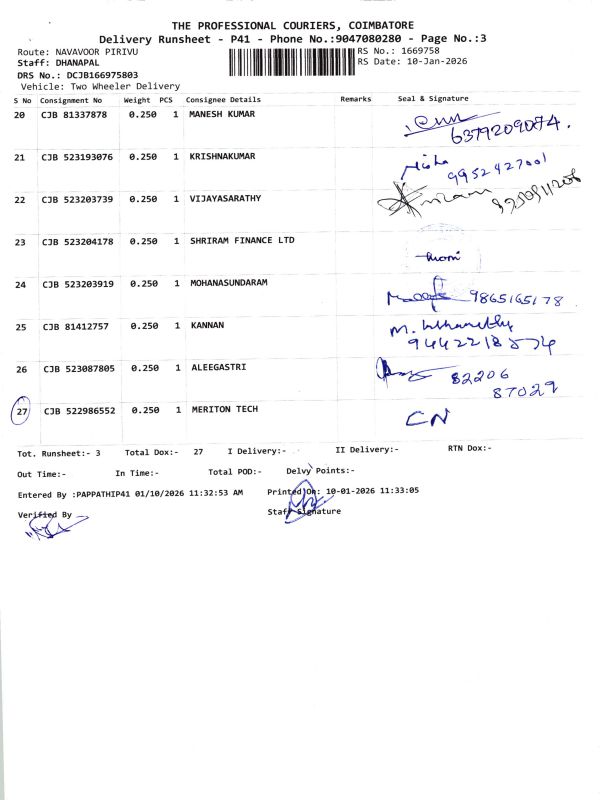 THE PROFESSIONAL COURIERS, COIMBATORE
Delivery Runsheet - P41 - Phone No.:9047080280 - Page No.:3
Route: NAVAVOOR PIRIVU RS No.: 1669758
Staff: DHANAPAL RS Date: 10-Jan-2026
DRS No.: DCJB166975803
Vehicle: Two Wheeler Delivery
S No Consignment No Weight PCS Consignee Details Remarks Seal & Signature
20 CJB 81337878 0.250 1 MANESH KUMAR
6379209074.
21 CJB 523193076 0.250 1 KRISHNAKUMAR
Nisha 9952427001
22 CJB 523203739 0.250 1 VIJAYASARATHY
23 CJB 523204178 0.250 1 SHRIRAM FINANCE LTD
24 CJB 523203919 0.250 1 MOHANASUNDARAM
9865165178
25 CJB 81412757 0.250 1 KANNAN
M.
26 CJB 523087805 0.250 1 ALEEGASTRI
82206
87029
27 CJB 522986552 0.250 1 MERITON TECH
CN
Tot. Runsheet:- 3 Total Dox:- 27 I Delivery:- II Delivery:- RTN Dox:-
Out Time:- In Time:- Total POD:- Delvy Points:-
Entered By :PAPPATHIP41 01/10/2026 11:32:53 AM Printed On: 10-01-2026 11:33:05
Verified By Staff Signature